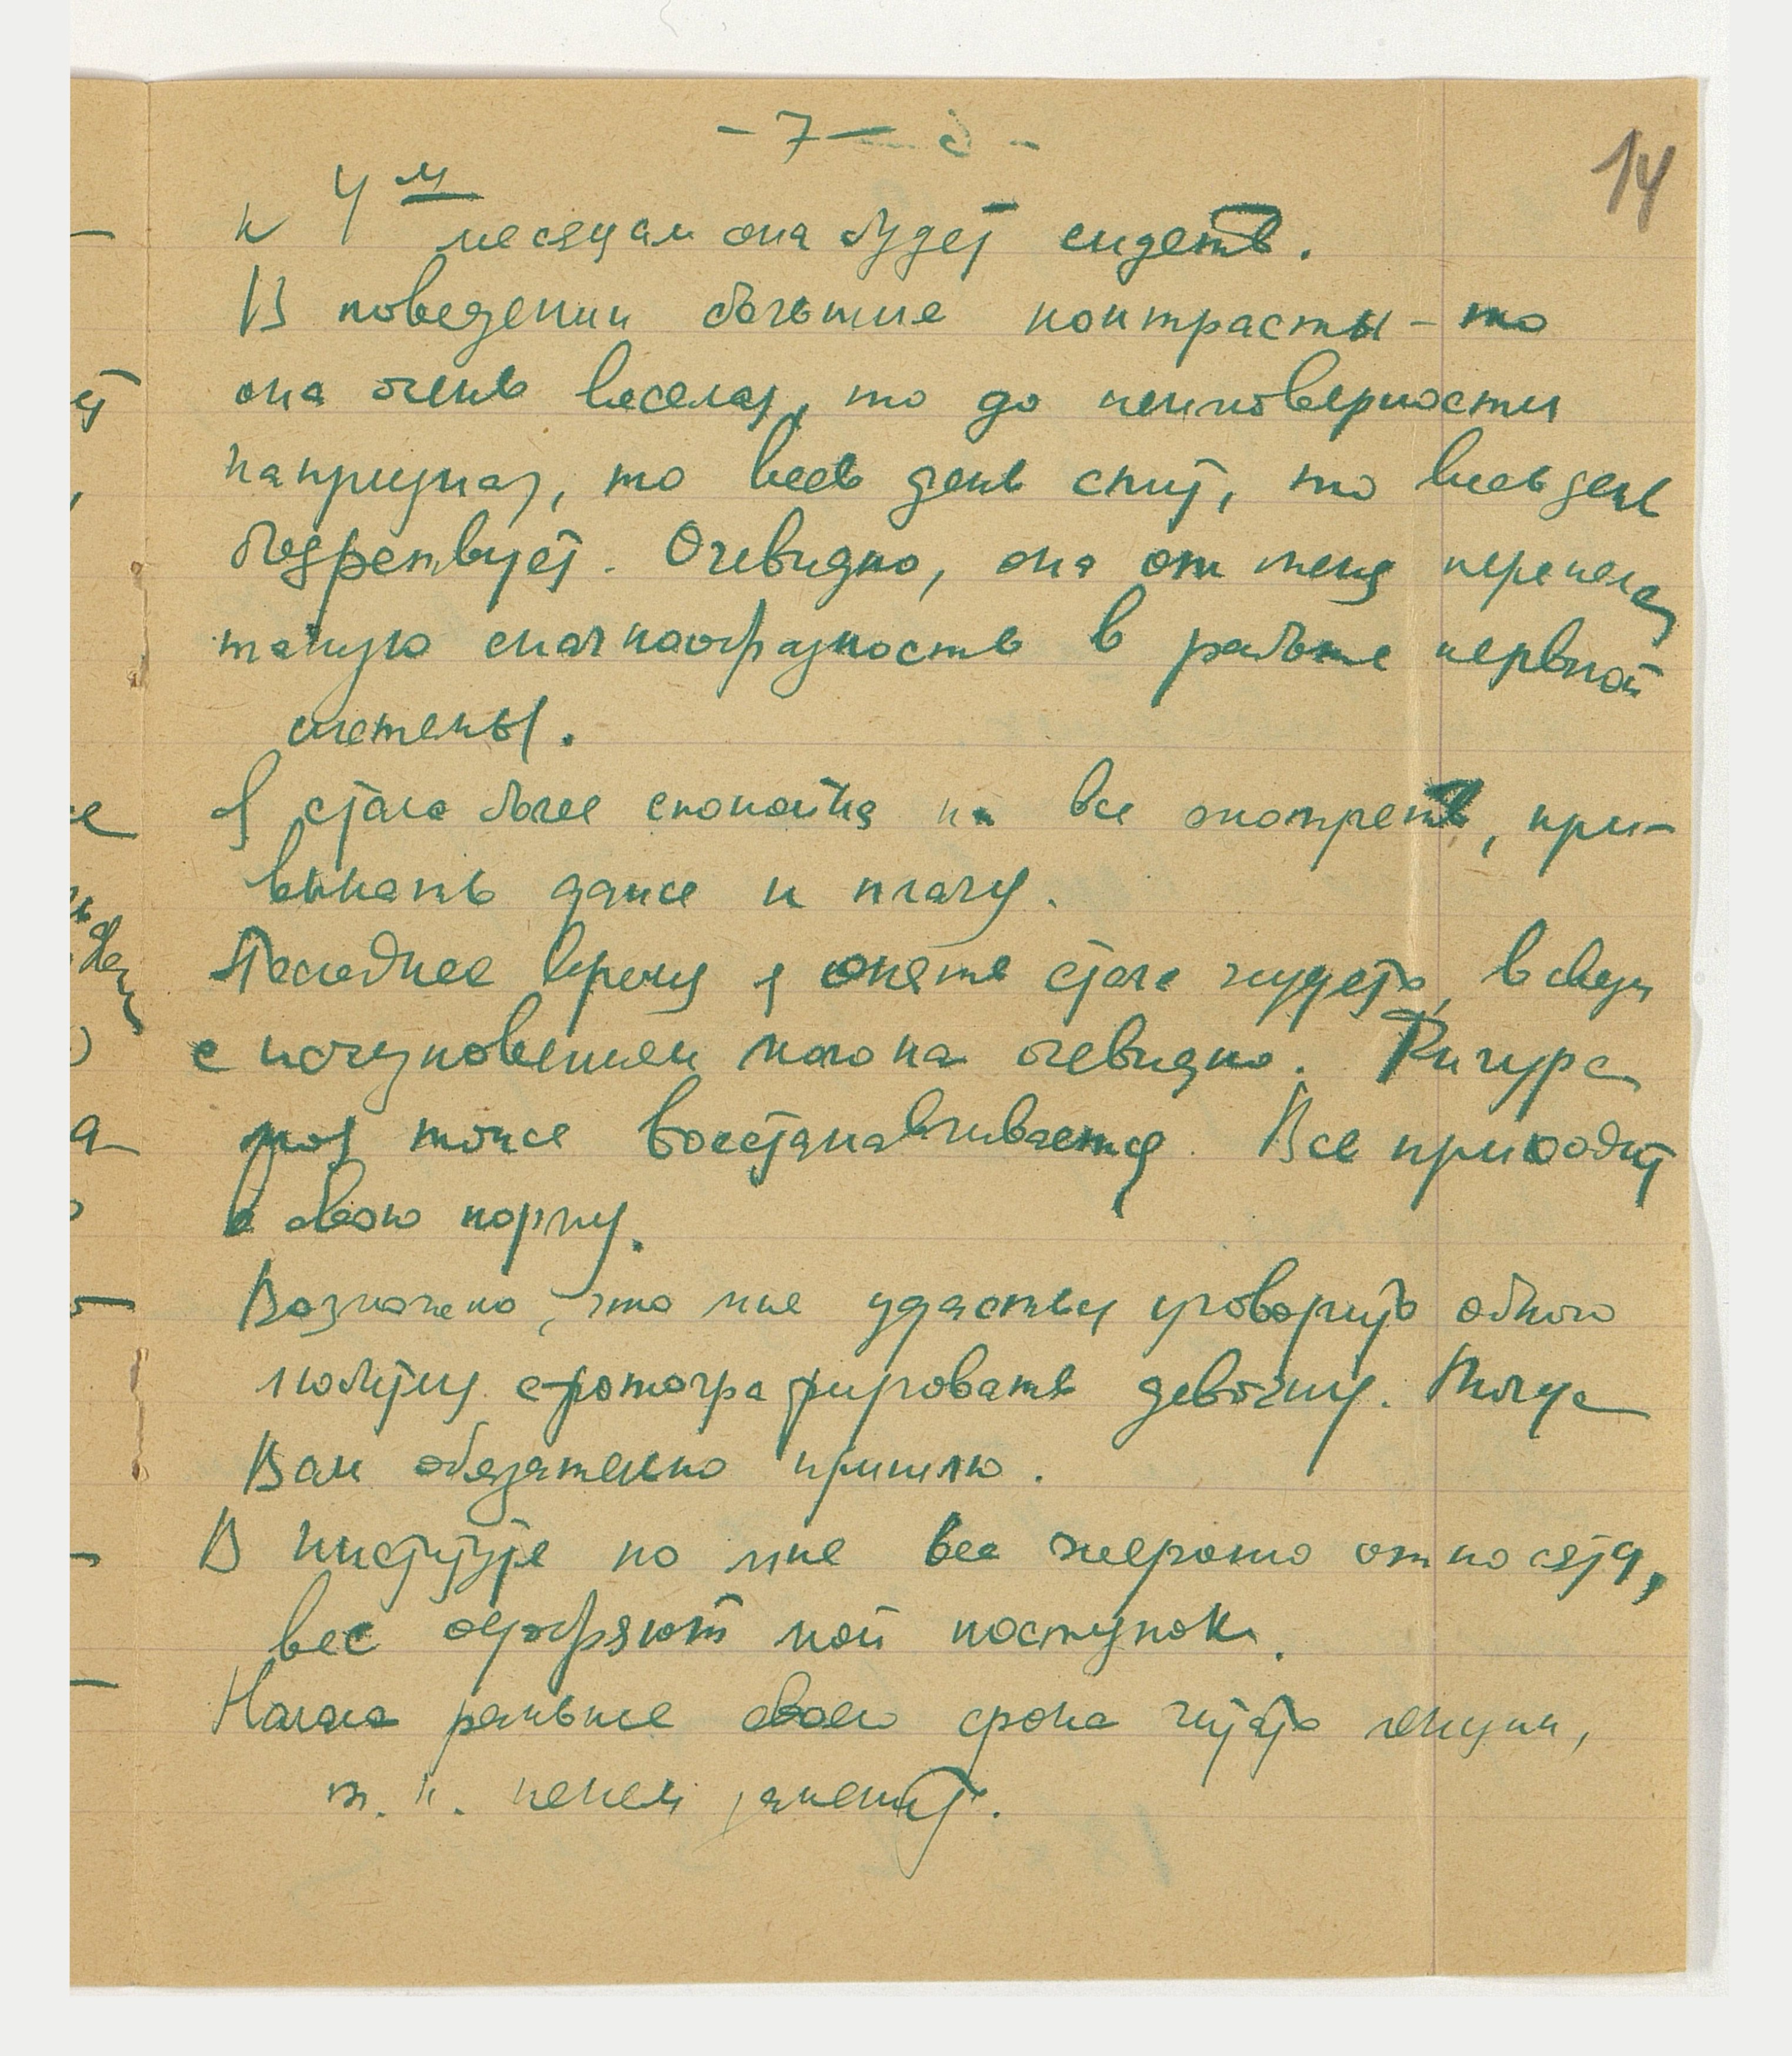 - 7 -
14
к 4м месяцам она будет сидеть.
В поведении большие контрасты - то
она очень веселая, то до неимоверности
капризная, то весь день спит, то весь день
бодрствует. Очевидно, она от меня переняла
такую скачкообразность в работе нервной
системы.
Я стала более спокойна на все смотреть, при-
выкать даже к плачу.
Последнее время я опять стала худеть, в связи
с исчезновением молока очевидно. Фигура
моя тоже восстанавливается. Все приходит
в свою норму.
Возможно, что мне удастся уговорить одного
сфотографировать девочку. Тогда
Вам обязательно пришлю.
В институте ко мне все хорошо относятся,
все одобряют мой поступок.
Начала раньше своего срока читать лекции,
т. к. некем заменить.